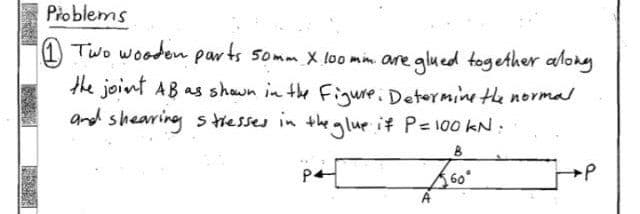 Problems
① Two wooden parts 50mm X 100 mm. are glued together along
the joint AB as shown in the Figure. Determine the normal
and shearing stresses in the glue if P = 100 kN.
B
P 60° P
A